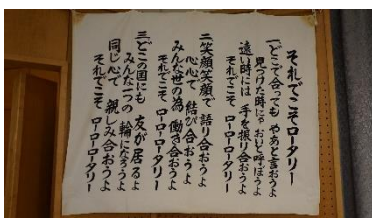 それでこそロータリー
一、どこで合っても やあと言おうよ
見つけた時にゃ おいと呼ぼうよ
遠い時には 手を振り合おうよ
それでこそ ローローロータリー
二、笑顔笑顔で 語り合おうよ
心心で 結び合おうよ
みんな世の為 働き合おうよ
それでこそ ローローロータリー
三、どこの国にも 友が居るよ
みんな一つの 輪になろうよ
同じ心で 親しみ合おうよ
それでこそ ローローロータリー